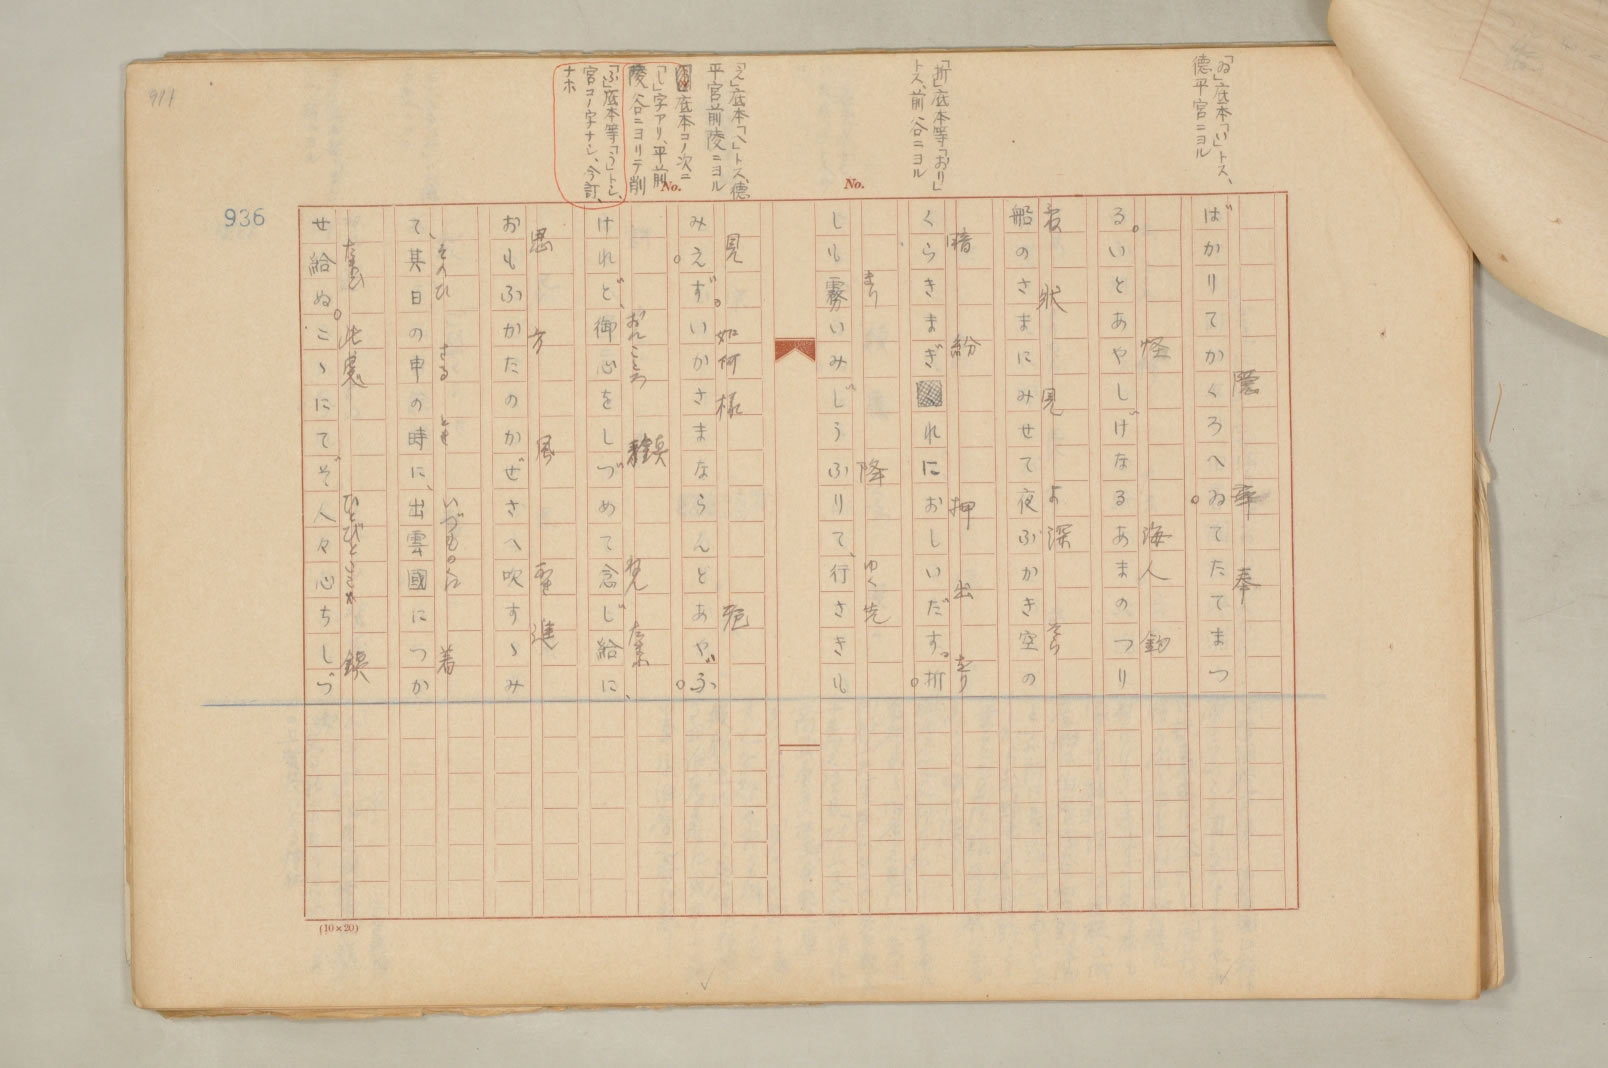 「ゐ」底本「い」トス、
德平宮ニヨル
「折」底本等「おり」
トス、前谷ニヨル
「え」底本「へ」トス、德
平宮前陵ニヨル
底本コノ次ニ
「し」字アリ、平前
陵谷ニヨリテ削
「ふ」底本等「う」トシ、
宮コノ字ナシ、今訂、
ナホ
No.
No.
936
隱 率 奉
ばかりてかくろへゐてたてまつ
怪 海人 釣
る。いとあやしげなるあまのつり
狀 見 よ 深 そら
船のさまにみせて夜ぶかき空の
暗 紛 押 出 をり
くらきまぎれにおしいだす。折
きり 降 ゆく先
しも霧いみじうふりて、行さきも
見 如何樣 危
みえず。いかさまならんとあやふ
おんこころ 鎭 ねん たまふ
けれど、御心をしづめて念じ給に、
思 方 風 進
おもふかたのかぜさへ吹すゝみ
そのひ さる とき いづものくに 着
て、其日の申の時に、出雲國につか
たまひ 此處 ひとびとここち 鎭
せ給ぬ。こゝにてぞ人々心ちしづ
(10×20)